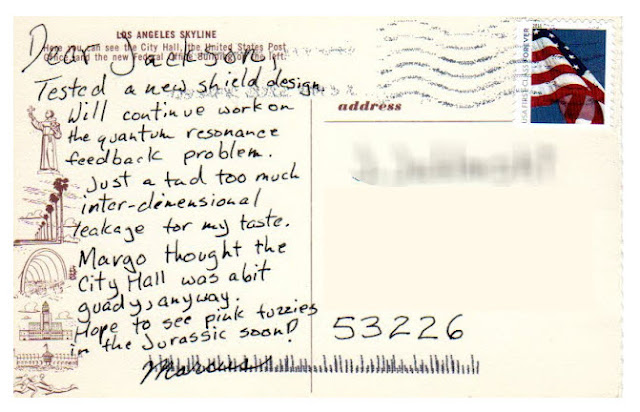 LOS ANGELES SKYLINE
Here you can see the City Hall, the United States Post
Office and the new Federal Office Building on the left.
Dear Jackson,
Tested a new shield design.
Will continue work on
the quantum resonance
feedback problem.
Just a tad too much
inter-dimensional
leakage for my taste.
Margo thought the
City Hall was a bit
guady, anyway.
Hope to see pink fuzzies
in the Jurassic soon!
Marcus
USA FIRST-CLASS FOREVER
address
53226